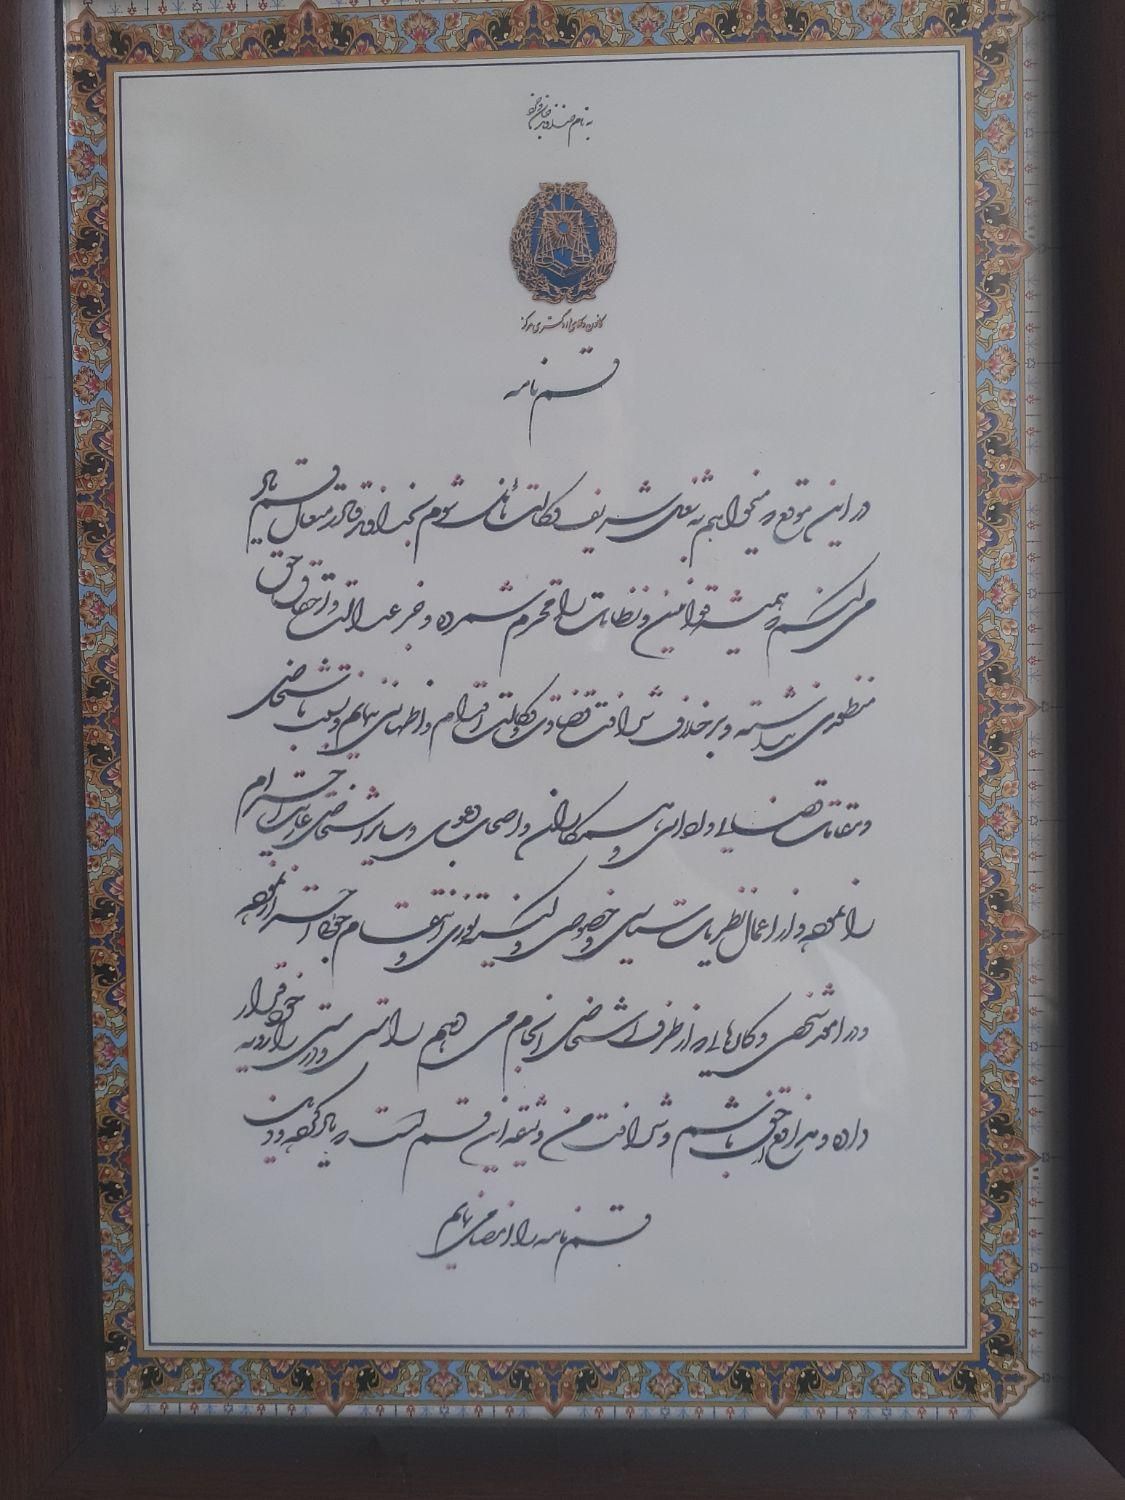 به نام خداوند جان و خرد
کانون وکلای دادگستری مرکز
قسم نامه
در این موقع که میخواهم به شغل شریف وکالت نائل شوم بخداوند قادر متعال قسم یاد
می کنم که همیشه قوانین و نظامات را محترم شمرده و جز عدالت و احقاق حق
منظوری نداشته و برخلاف شرافت قضاوت و وکالت اقدام و اظهاری ننمایم و نسبت باشخاص
و مقامات قضائی و اداری و همکاران و اصحاب دعوی و سایر اشخاص رعایت احترام
را نموده و از اعمال نظریات سیاسی و خصوصی و کینه توزی و انتقام جوئی احتراز نموده
و در امور شخصی و کارهائی که از طرف اشخاص انجام می دهم راستی و درستی را رویه خود قرار
داده و مدافع از حق باشم و شرافت من وثیقه این قسم است که یاد کرده و ذیل
قسم نامه را امضا می نمایم